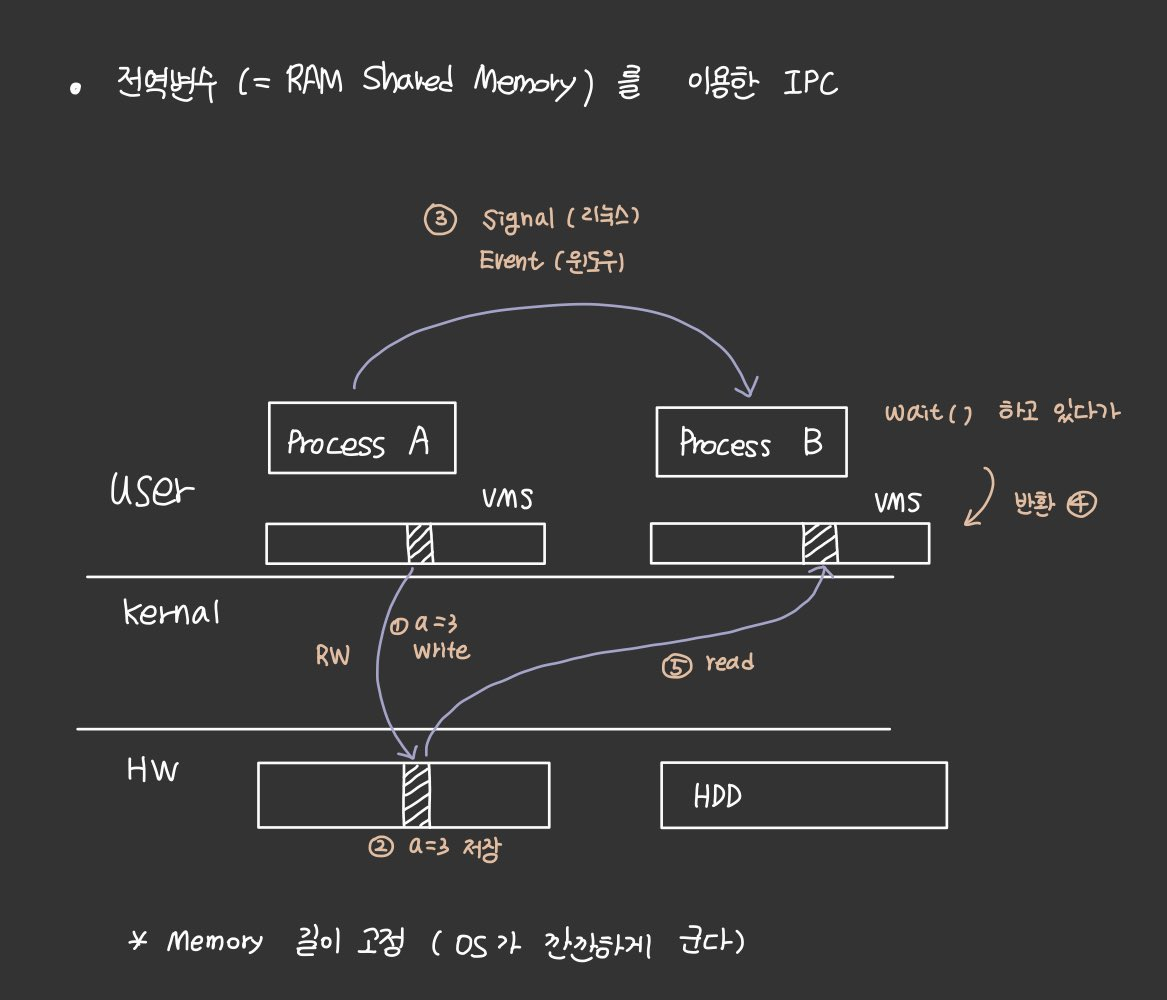 • 전역변수 (= RAM Shared Memory) 를 이용한 IPC
③ Signal (리눅스)
Event (윈도우)
Process A
Process B
wait() 하고 있다가
user
VMS
VMS
반환 ④
kernal
① a=3
write
RW
⑤ read
HW
HDD
② a=3 저장
* Memory 길이 고정 (OS가 깐깐하게 군다)